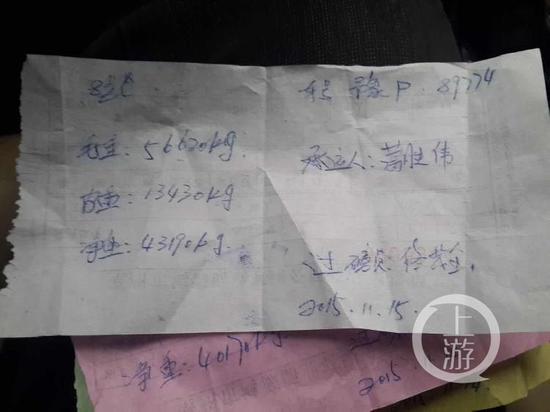 车号 豫P·89774
毛重:56620kg
承运人:葛胜伟
自重:13430kg
净重:43190kg
过磅员:
2015.11.15
净重:40170kg
2015
上游